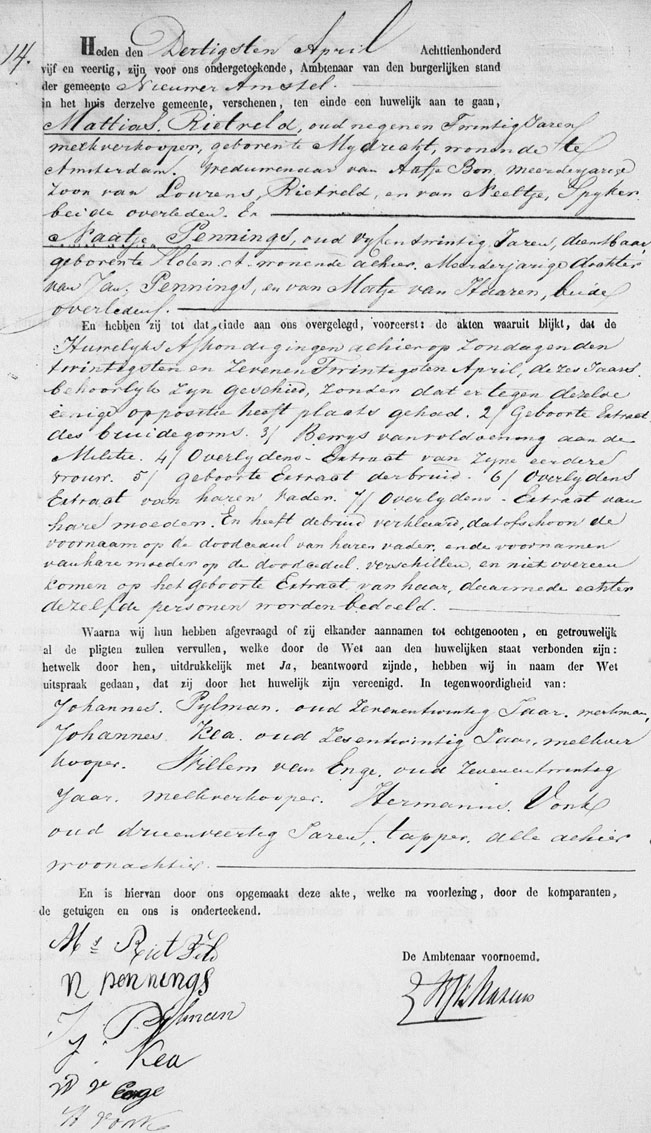 14.
Heden den Dertigsten April Achttienhonderd
vijf en veertig, zijn voor ons ondergeteekende, Ambtenaar van den burgerlijken stand
der gemeente Nieuwer Amstel.
in het huis derzelve gemeente, verschenen, ten einde een huwelijk aan te gaan,
Mattias. Rietveld, oud negenen Twintig Jaren
melkverkooper, geboren te Mydrecht, wonende te
Amsterdam. Weduwenaar van Aafje Bon, meerderjarige
Zoon van Lourens, Rietveld, en van Neeltje, Spyker.
beide overleden. En
Naatje Pennings, oud vyfentwintig Jaren, dienstbaar,
geboren te wonende alhier. Meerderjarige dochter
van Jan. Pennings, en van Matje van Haaren, beide
overleden.
En hebben zij tot dat einde aan ons overgelegd, vooreerst: de akten waaruit blijkt, dat de
Huwelyks Afkondigingen alhier op Zondagen den
twintigsten en Zevenen Twintigsten April, dezes Jaars.
behoorlyk Zyn geschied, Zonder dat er tegen dezelve
eenige oppositie heeft plaats gehad. 2/ Geboorte Extract
des bruidegoms. 3/ Bewys van voldoening aan de
Militie. 4/ Overlydens- Extract van Zyne eerdere
vrouw. 5/ geboorte Extract der bruid. 6/ Overlydens
Extract van haren vader. 7/ Overlydens- Extract van
hare moeder. En heeft de bruid verklaard, dat ofschoon de
voornaam op de doodcedul van haren vader, en de voornamen
van hare moeder op de doodcedul. verschillen, en niet overeen
komen op het geboorte Extract van haar, daarmede echter
dezelfde personen worden bedoeld.
Waarna wij hun hebben afgevraagd of zij elkander aannamen tot echtgenooten, en getrouwelijk
al de pligten zullen vervullen, welke door de Wet aan den huwelijken staat verbonden zijn:
hetwelk door hen, uitdrukkelijk met Ja, beantwoord zijnde, hebben wij in naam der Wet
uitspraak gedaan, dat zij door het huwelijk zijn vereenigd. In tegenwoordigheid van:
Johannes. Pylman. oud Zevenentwintig Jaar. werkman,
Johannes. Kea. oud Zesentwintig Jaar, melkver
kooper. Willem van Enge. oud Zevenentwintig
Jaar. melkverkooper. Hermanus. Vonk
oud drieenveertig Jaren, tapper. alle alhier
woonachtig.
En is hiervan door ons opgemaakt deze akte, welke na voorlezing, door de komparanten,
de getuigen en ons is onderteekend.
Ms Riet Feld
N pennings
J Pylman
J. Kea
W v Enge
H vonk
De Ambtenaar voornoemd.